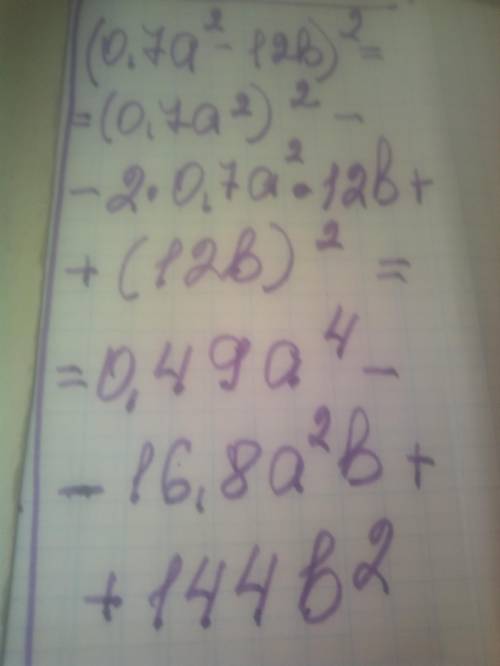 (0,7a² - 12b)² =
= (0,7a²)² -
- 2 · 0,7a² · 12b +
+ (12b)² =
= 0,49a⁴ -
- 16,8a²b +
+ 144b²